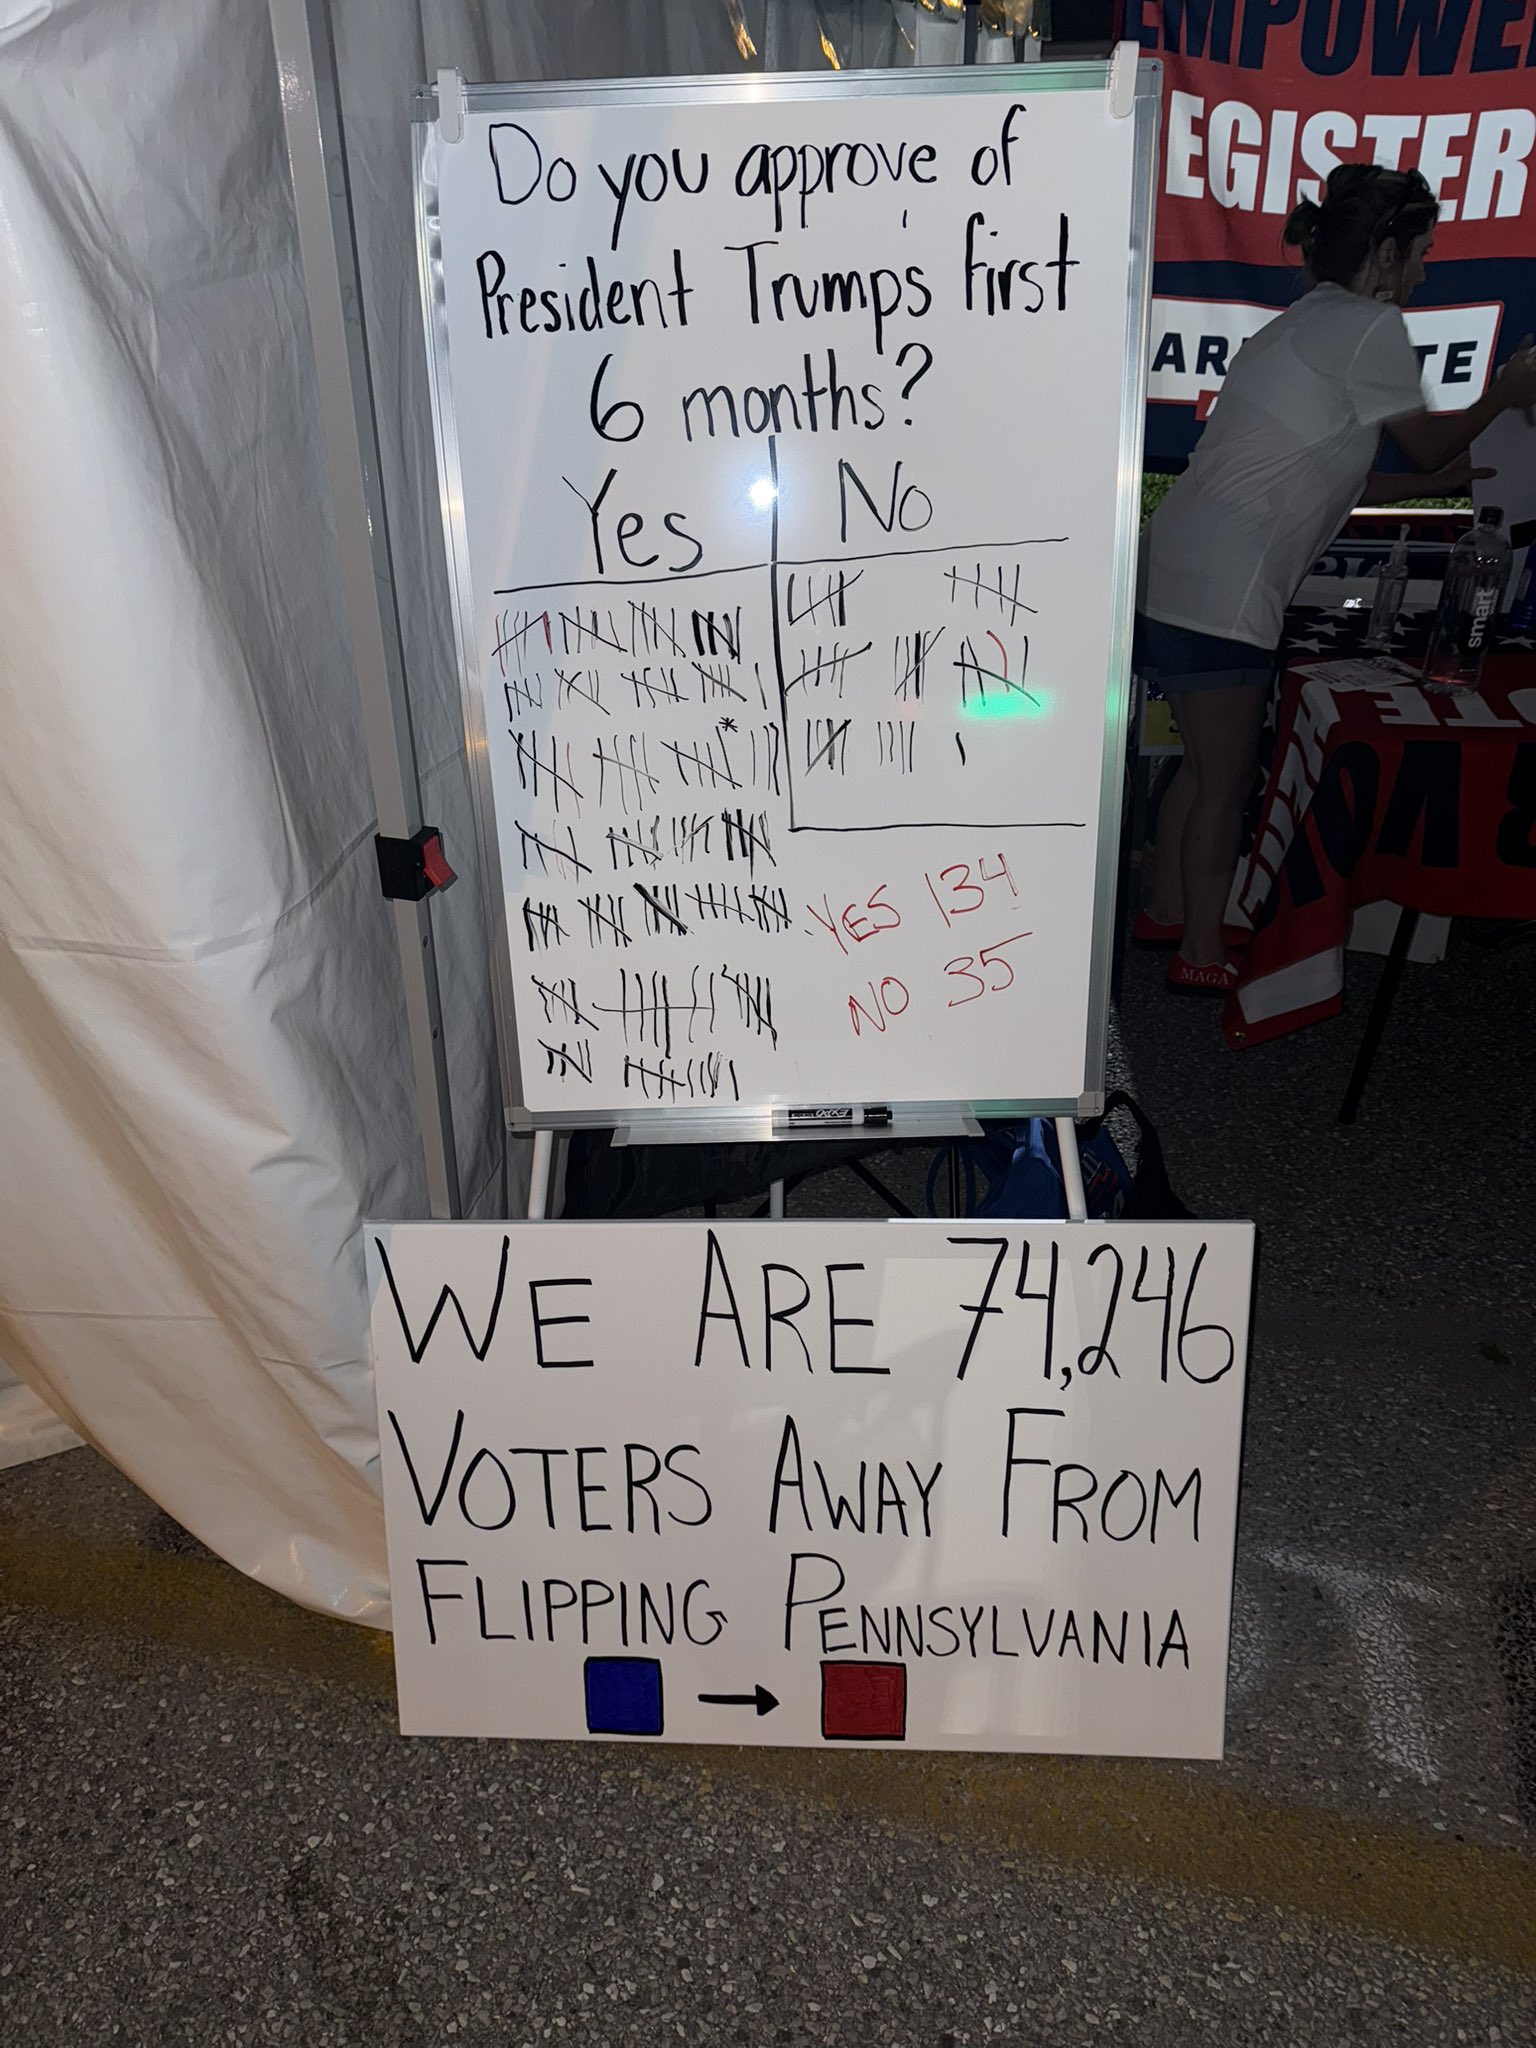 Do you approve of
President Trump's first
6 months?
Yes No
YES 134
NO 35
EXPO
WE ARE 74,246
VOTERS AWAY FROM
FLIPPING PENNSYLVANIA
EMPOWE
EGISTER
AR TE
smart
MAGA
VO